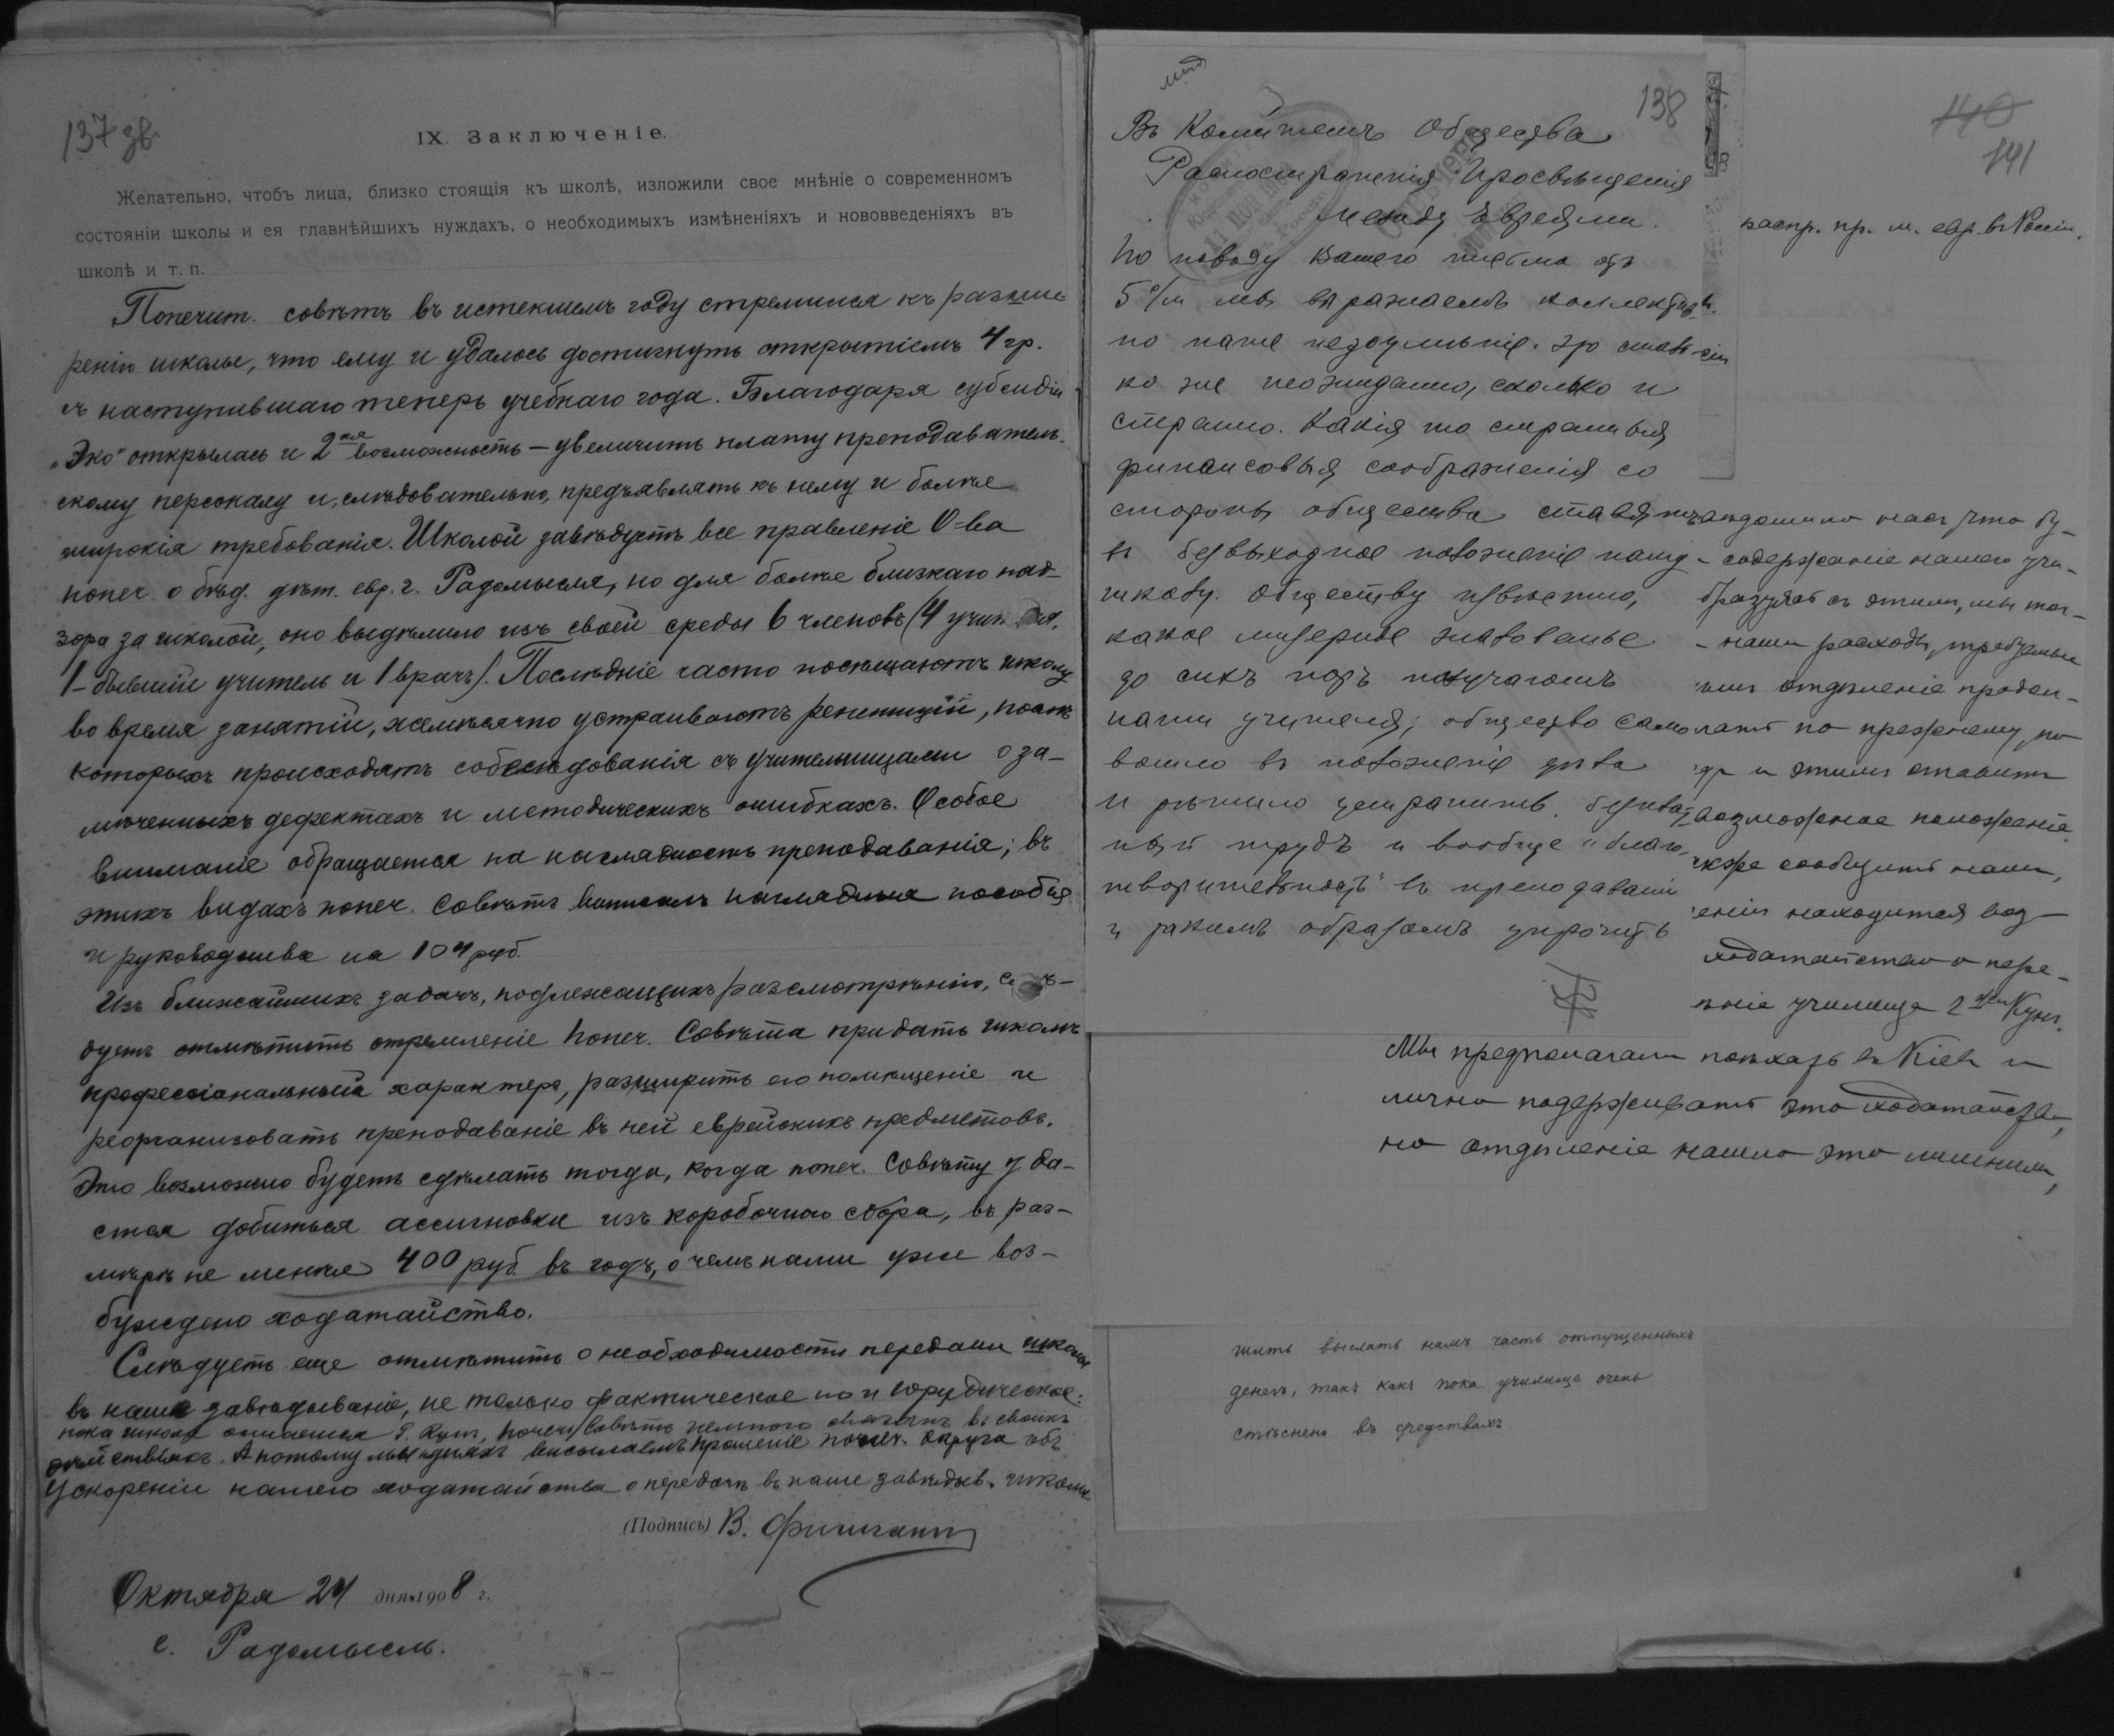 137 зв.
IX. Заключеніе.
Желательно, чтобъ лица, близко стоящія къ школѣ, изложили свое мнѣніе о современномъ
состояніи школы и ея главнѣйшихъ нуждахъ, о необходимыхъ измѣненіяхъ и нововведеніяхъ въ
школѣ и т. п.
Попечит. совѣтъ въ истекшемъ году стремился къ разши-
ренію школы, что ему и удалось достигнуть открытіемъ 4 гр.
съ наступившаго теперь учебнаго года. Благодаря субсидіи
„Эко" открылась и 2ая возможность – увеличить плату преподаватель-
скому персоналу и, слѣдовательно, предъявлять къ нему и болѣе
широкія требованія. Школой завѣдуетъ все правленіе О-ва
попеч. о бѣд. дѣт. евр. г. Радомысля, но для болѣе близкаго над-
зора за школой, оно выдѣлило изъ своей среды 6 членовъ (4 учит
1 – бывшій учитель и 1 врачъ). Послѣдніе часто посѣщаютъ школу
во время занятій, ежемѣсячно устраиваютъ репетиціи, послѣ
которыхъ происходятъ собесѣдованія съ учительницами о за-
мѣченныхъ дефектахъ и методическихъ ошибкахъ. Особое
вниманіе обращается на наглядность преподаванія; въ
этихъ видахъ попеч. Совѣтъ выписалъ наглядныя пособія
и руководства на 104 руб.
Изъ ближайшихъ задачъ, подлежащихъ разсмотрѣнію, с ѣ-
дуетъ отмѣтить стремленіе Попеч. Совѣта придать школѣ
профессіональный характеръ, разширить его помѣщеніе и
реорганизовать преподаваніе въ ней еврейскихъ предметовъ.
Это возможно будетъ сдѣлать тогда, когда попеч. Совѣту уда-
стся добиться ассигновки изъ коробочнаго сбора, въ раз-
мѣрѣ не менѣе 400 руб. въ годъ, о чемъ нами уже воз-
буждено ходатайство.
Слѣдуетъ еще отмѣтить о необходимости передачи школы
въ наше завѣдываніе, не только фактическое но и юридическое:
пока школа Г. Кун, Попеч. Совѣтъ немного связанъ въ своихъ
дѣйствіяхъ. А потому мы высылаемъ прошеніе попеч. округа объ
ускореніи нашего ходатайства о передачѣ въ наше завѣдыв. школы
(Подпись) В. Фишман
Октября 24 дня 1908 г.
г. Радомысль.
— 8 —
138
Въ Комитетъ Общества
Распостраненія Просвѣщенія
между Евреями.
По поводу Вашего письма отъ
5 с/м мы выражаемъ коллектив-
но наше недоумѣніе. Это столь
ко же неожиданно, сколько и
странно. Какія то странныя
финансовыя соображенія со
стороны общества ставятъ
въ безвыходное положеніе нашу
школу. Обществу извѣстно,
какое мизерное жалованье
до сихъ поръ получаютъ
наши учителя; общество само
вошло въ положеніе дѣла
и рѣшило устранить безплат-
ный трудъ и вообще "благо-
творительность" въ преподаваніи
и такимъ образомъ упрочить
140
141
распр. пр. м. евр. въ Россіи.
нась что бу-
- содержаніе нашего учи-
съ этимъ, мы
- наши расходы, требуемые
отдѣленіе продол-
лаютъ по прежнему, но
и этимъ ставитъ
возможное положеніе
кже сообщить намъ,
еніи находится воз-
ходатайство о пере-
ніе училища 2 ой Купч.
Мы предполагали поѣхать въ Кіевъ и
лично подерживать это ходатайство,
но отдѣленіе нашло это лишнимъ,
жить выслать намъ часть отпущенныхъ
денегъ, такъ какъ пока училище очень
стѣснено въ средствахъ